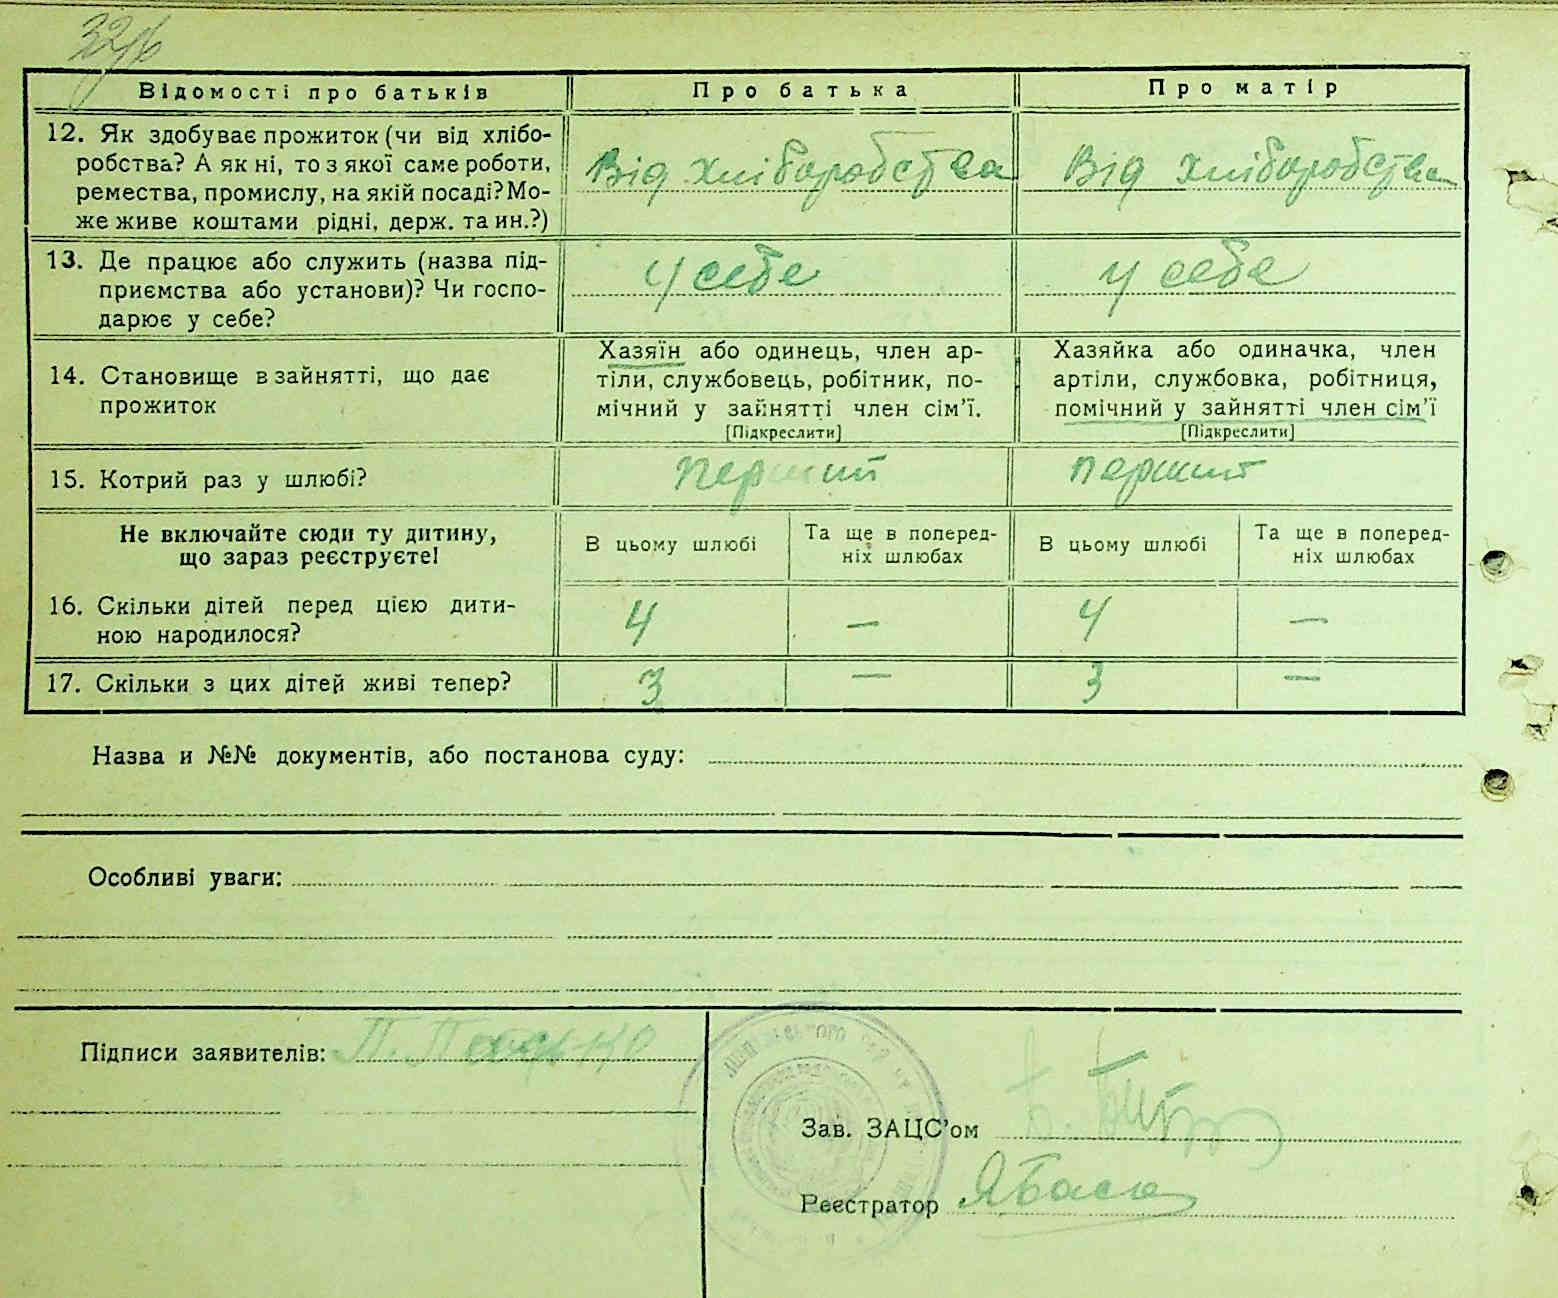 Відомості про батьків
Про батька
Про матір
12. Як здобуває прожиток (чи від хлібо-
робства? А як ні, то з якої саме роботи,
ремества, промислу, на якій посаді? Мо-
же живе коштами рідні, держ. та ин.?)
Від хліборобства
Від хліборобства
13. Де працює або служить (назва під-
приємства або установи)? Чи госпо-
дарює у себе?
у себе
у себе
14. Становище в зайнятті, що дає
прожиток
Хазяїн або одинець, член ар-
тіли, службовець, робітник, по-
мічний у зайнятті член сім'ї.
[Підкреслити]
Хазяйка або одиначка, член
артіли, службовка, робітниця,
помічний у зайнятті член сім'ї
[Підкреслити]
15. Котрий раз у шлюбі?
перший
перший
Не включайте сюди ту дитину,
що зараз реєструєте!
В цьому шлюбі
Та ще в поперед-
ніх шлюбах
В цьому шлюбі
Та ще в поперед-
ніх шлюбах
16. Скільки дітей перед цією дити-
ною народилося?
4
—
4
—
17. Скільки з цих дітей живі тепер?
3
—
3
—
Назва и №№ документів, або постанова суду:
Особливі уваги:
Підписи заявителів: П.
Зав. ЗАЦС'ом
Реєстратор